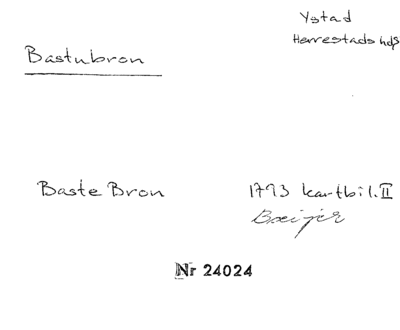 Ystad
Herrestads hds
Bastubron
Baste Bron
1793 kartbil. II
Breijer
Nr 24024